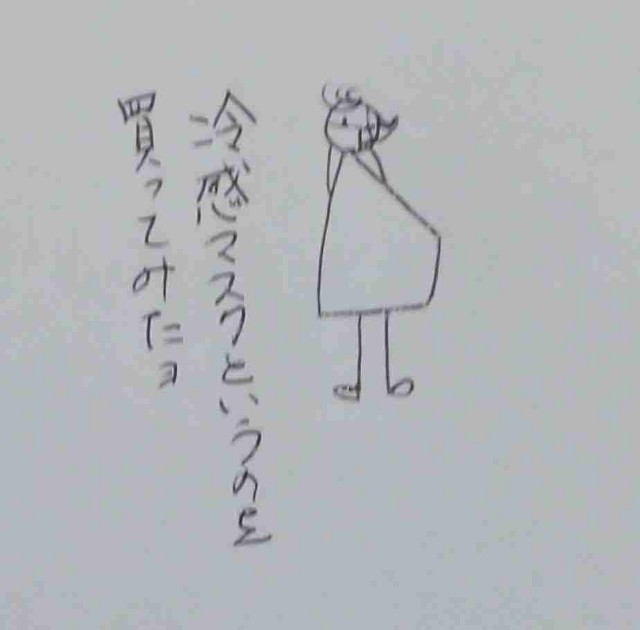 冷感マスクというのを
買ってみたョ